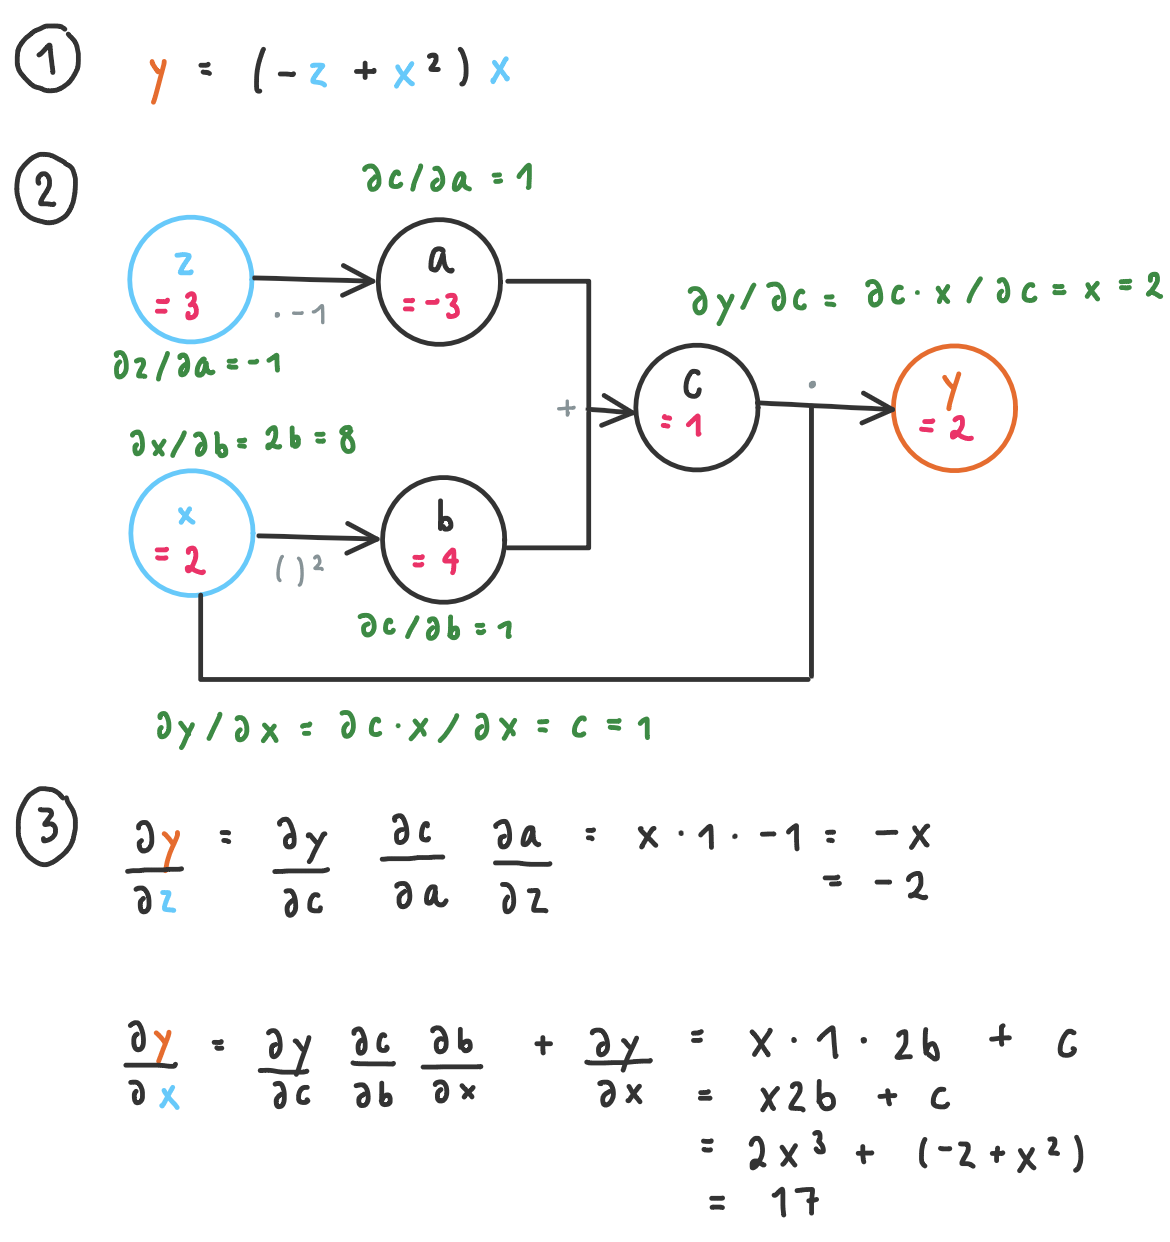 1 y = (-z + x²) x
2
∂c/∂a = 1
z = 3
· -1
a = -3
∂z/∂a = -1
∂y/∂c = ∂c·x/∂c = x = 2
+
c = 1
·
y = 2
∂x/∂b = 2b = 8
x = 2
( )²
b = 4
∂c/∂b = 1
∂y/∂x = ∂c·x/∂x = c = 1
3
∂y/∂z = ∂y/∂c ∂c/∂a ∂a/∂z = x · 1 · -1 = -x
= -2
∂y/∂x = ∂y/∂c ∂c/∂b ∂b/∂x + ∂y/∂x = x · 1 · 2b + c
= x2b + c
= 2x³ + (-z + x²)
= 17